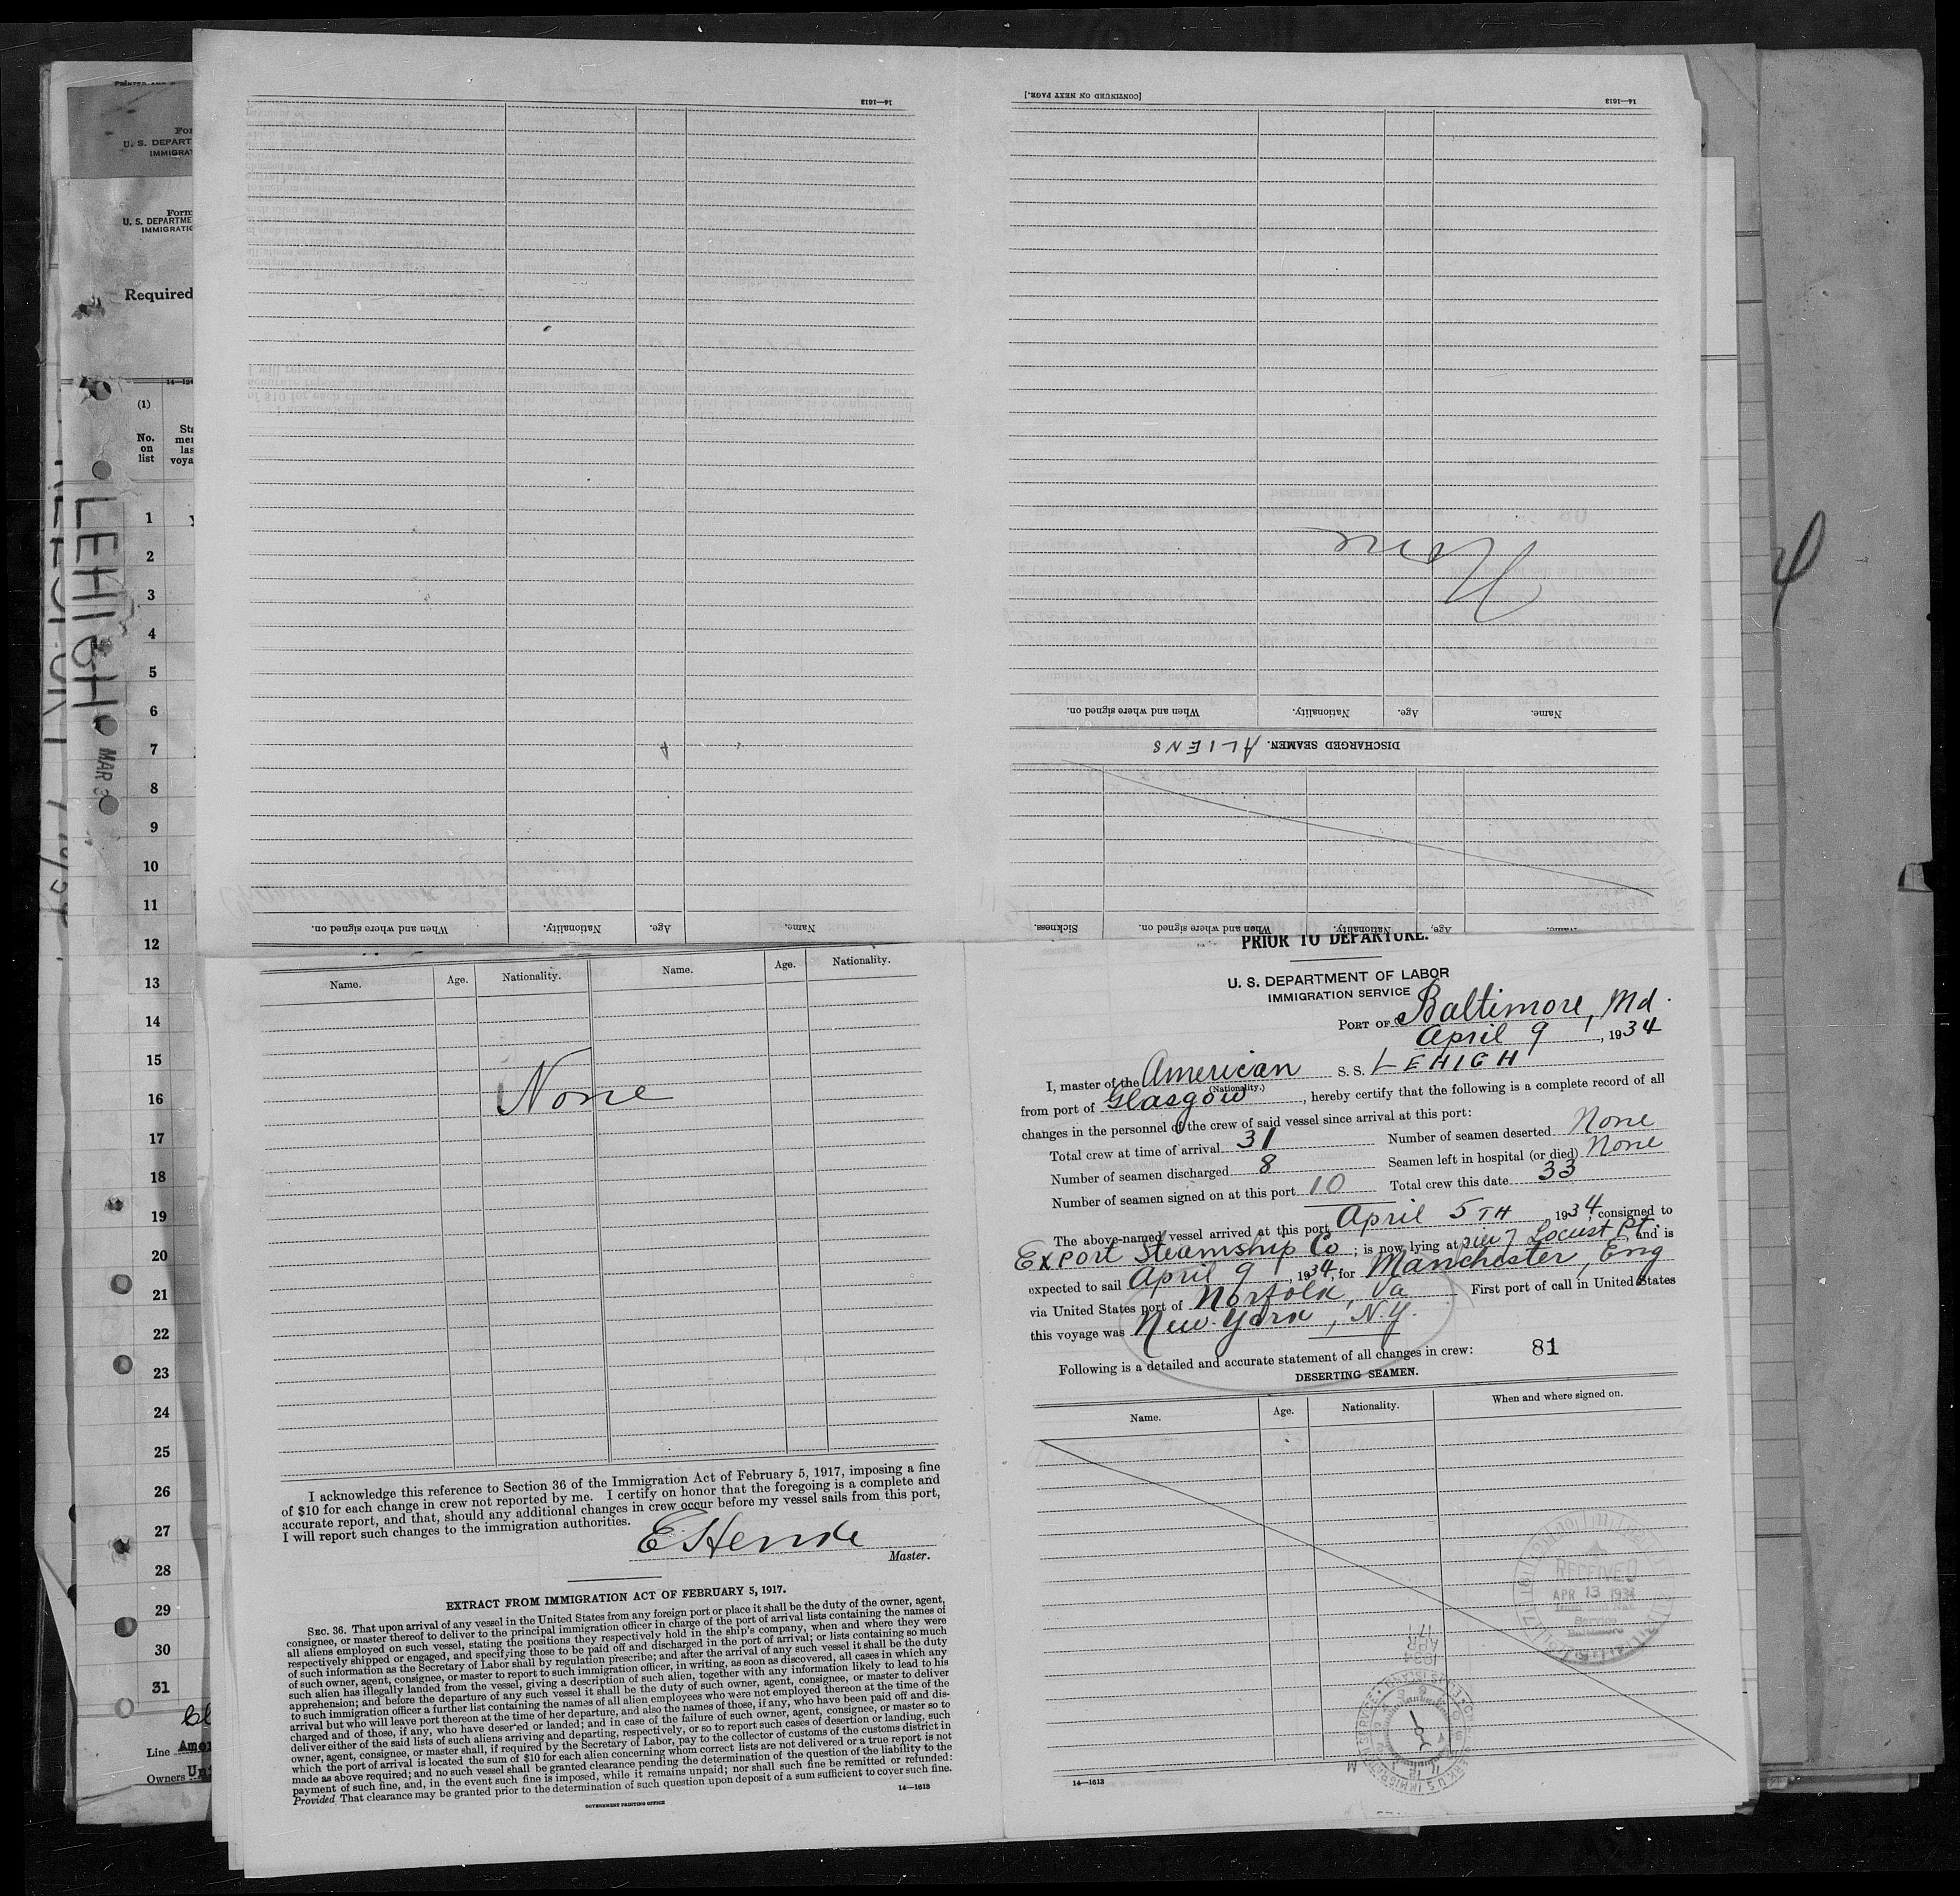 14—1613
[CONTINUED ON NEXT PAGE.]
14—1613
None
Name. Age. Nationality. When and where signed on.
DISCHARGED SEAMEN. ALIENS
Name. Age. Nationality. When and where signed on.
Name. Age. Nationality. When and where signed on. Sickness.
U. S. DEPART
IMMIGRA
Form
U. S. DEPARTME
IMMIGRATIO
Required
(1)
No.
on
list
LEHIGH
MAR
1
2
3
4
5
6
7
8
9
10
11
12
13
14
15
16
17
18
19
20
21
22
23
24
25
26
27
28
29
30
31
Line Amer
Owners Un
Name. Age. Nationality. Name. Age. Nationality.
None
I acknowledge this reference to Section 36 of the Immigration Act of February 5, 1917, imposing a fine
of $10 for each change in crew not reported by me. I certify on honor that the foregoing is a complete and
accurate report, and that, should any additional changes in crew occur before my vessel sails from this port,
I will report such changes to the immigration authorities.
Master.
EXTRACT FROM IMMIGRATION ACT OF FEBRUARY 5, 1917.
SEC. 36. That upon arrival of any vessel in the United States from any foreign port or place it shall be the duty of the owner, agent,
consignee, or master thereof to deliver to the principal immigration officer in charge of the port of arrival lists containing the names of
all aliens employed on such vessel, stating the positions they respectively hold in the ship's company, when and where they were
respectively shipped or engaged, and specifying those to be paid off and discharged in the port of arrival; or lists containing so much
of such information as the Secretary of Labor shall by regulation prescribe; and after the arrival of any such vessel it shall be the duty
of such owner, agent, consignee, or master to report to such immigration officer, in writing, as soon as discovered, all cases in which any
such alien has illegally landed from the vessel, giving a description of such alien, together with any information likely to lead to his
apprehension; and before the departure of any such vessel it shall be the duty of such owner, agent, consignee, or master to deliver
to such immigration officer a further list containing the names of all alien employees who were not employed thereon at the time of the
arrival but who will leave port thereon at the time of her departure, and also the names of those, if any, who have been paid off and dis-
charged and of those, if any, who have deserted or landed; and in case of the failure of such owner, agent, consignee, or master so to
deliver either of the said lists of such aliens arriving and departing, respectively, or so to report such cases of desertion or landing, such
owner, agent, consignee, or master shall, if required by the Secretary of Labor, pay to the collector of customs of the customs district in
which the port of arrival is located the sum of $10 for each alien concerning whom correct lists are not delivered or a true report is not
made as above required; and no such vessel shall be granted clearance pending the determination of the question of the liability to the
payment of such fine, and, in the event such fine is imposed, while it remains unpaid; nor shall such fine be remitted or refunded:
Provided That clearance may be granted prior to the determination of such question upon deposit of a sum sufficient to cover such fine.
14—1613
GOVERNMENT PRINTING OFFICE
PRIOR TO DEPARTURE.
U. S. DEPARTMENT OF LABOR
IMMIGRATION SERVICE
PORT OF Baltimore, Md.
April 9, 1934
I, master of the American S. S. LEHIGH
(Nationality.)
from port of Glasgow, hereby certify that the following is a complete record of all
changes in the personnel of the crew of said vessel since arrival at this port:
Total crew at time of arrival 31 Number of seamen deserted None
Number of seamen discharged 8 Seamen left in hospital (or died) None
Number of seamen signed on at this port 10 Total crew this date 33
The above-named vessel arrived at this port April 5TH, 1934, consigned to
Export Steamship Co; is now lying at pier 7 Locust Pt. and is
expected to sail April 9, 1934, for Manchester, Eng
via United States port of Norfolk, Va First port of call in United States
this voyage was New York, N.Y.
Following is a detailed and accurate statement of all changes in crew: 81
DESERTING SEAMEN.
Name. Age. Nationality. When and where signed on.
RECEIVED
APR 13 1934
Service
Baltimore
1934
APR
17
14—1613